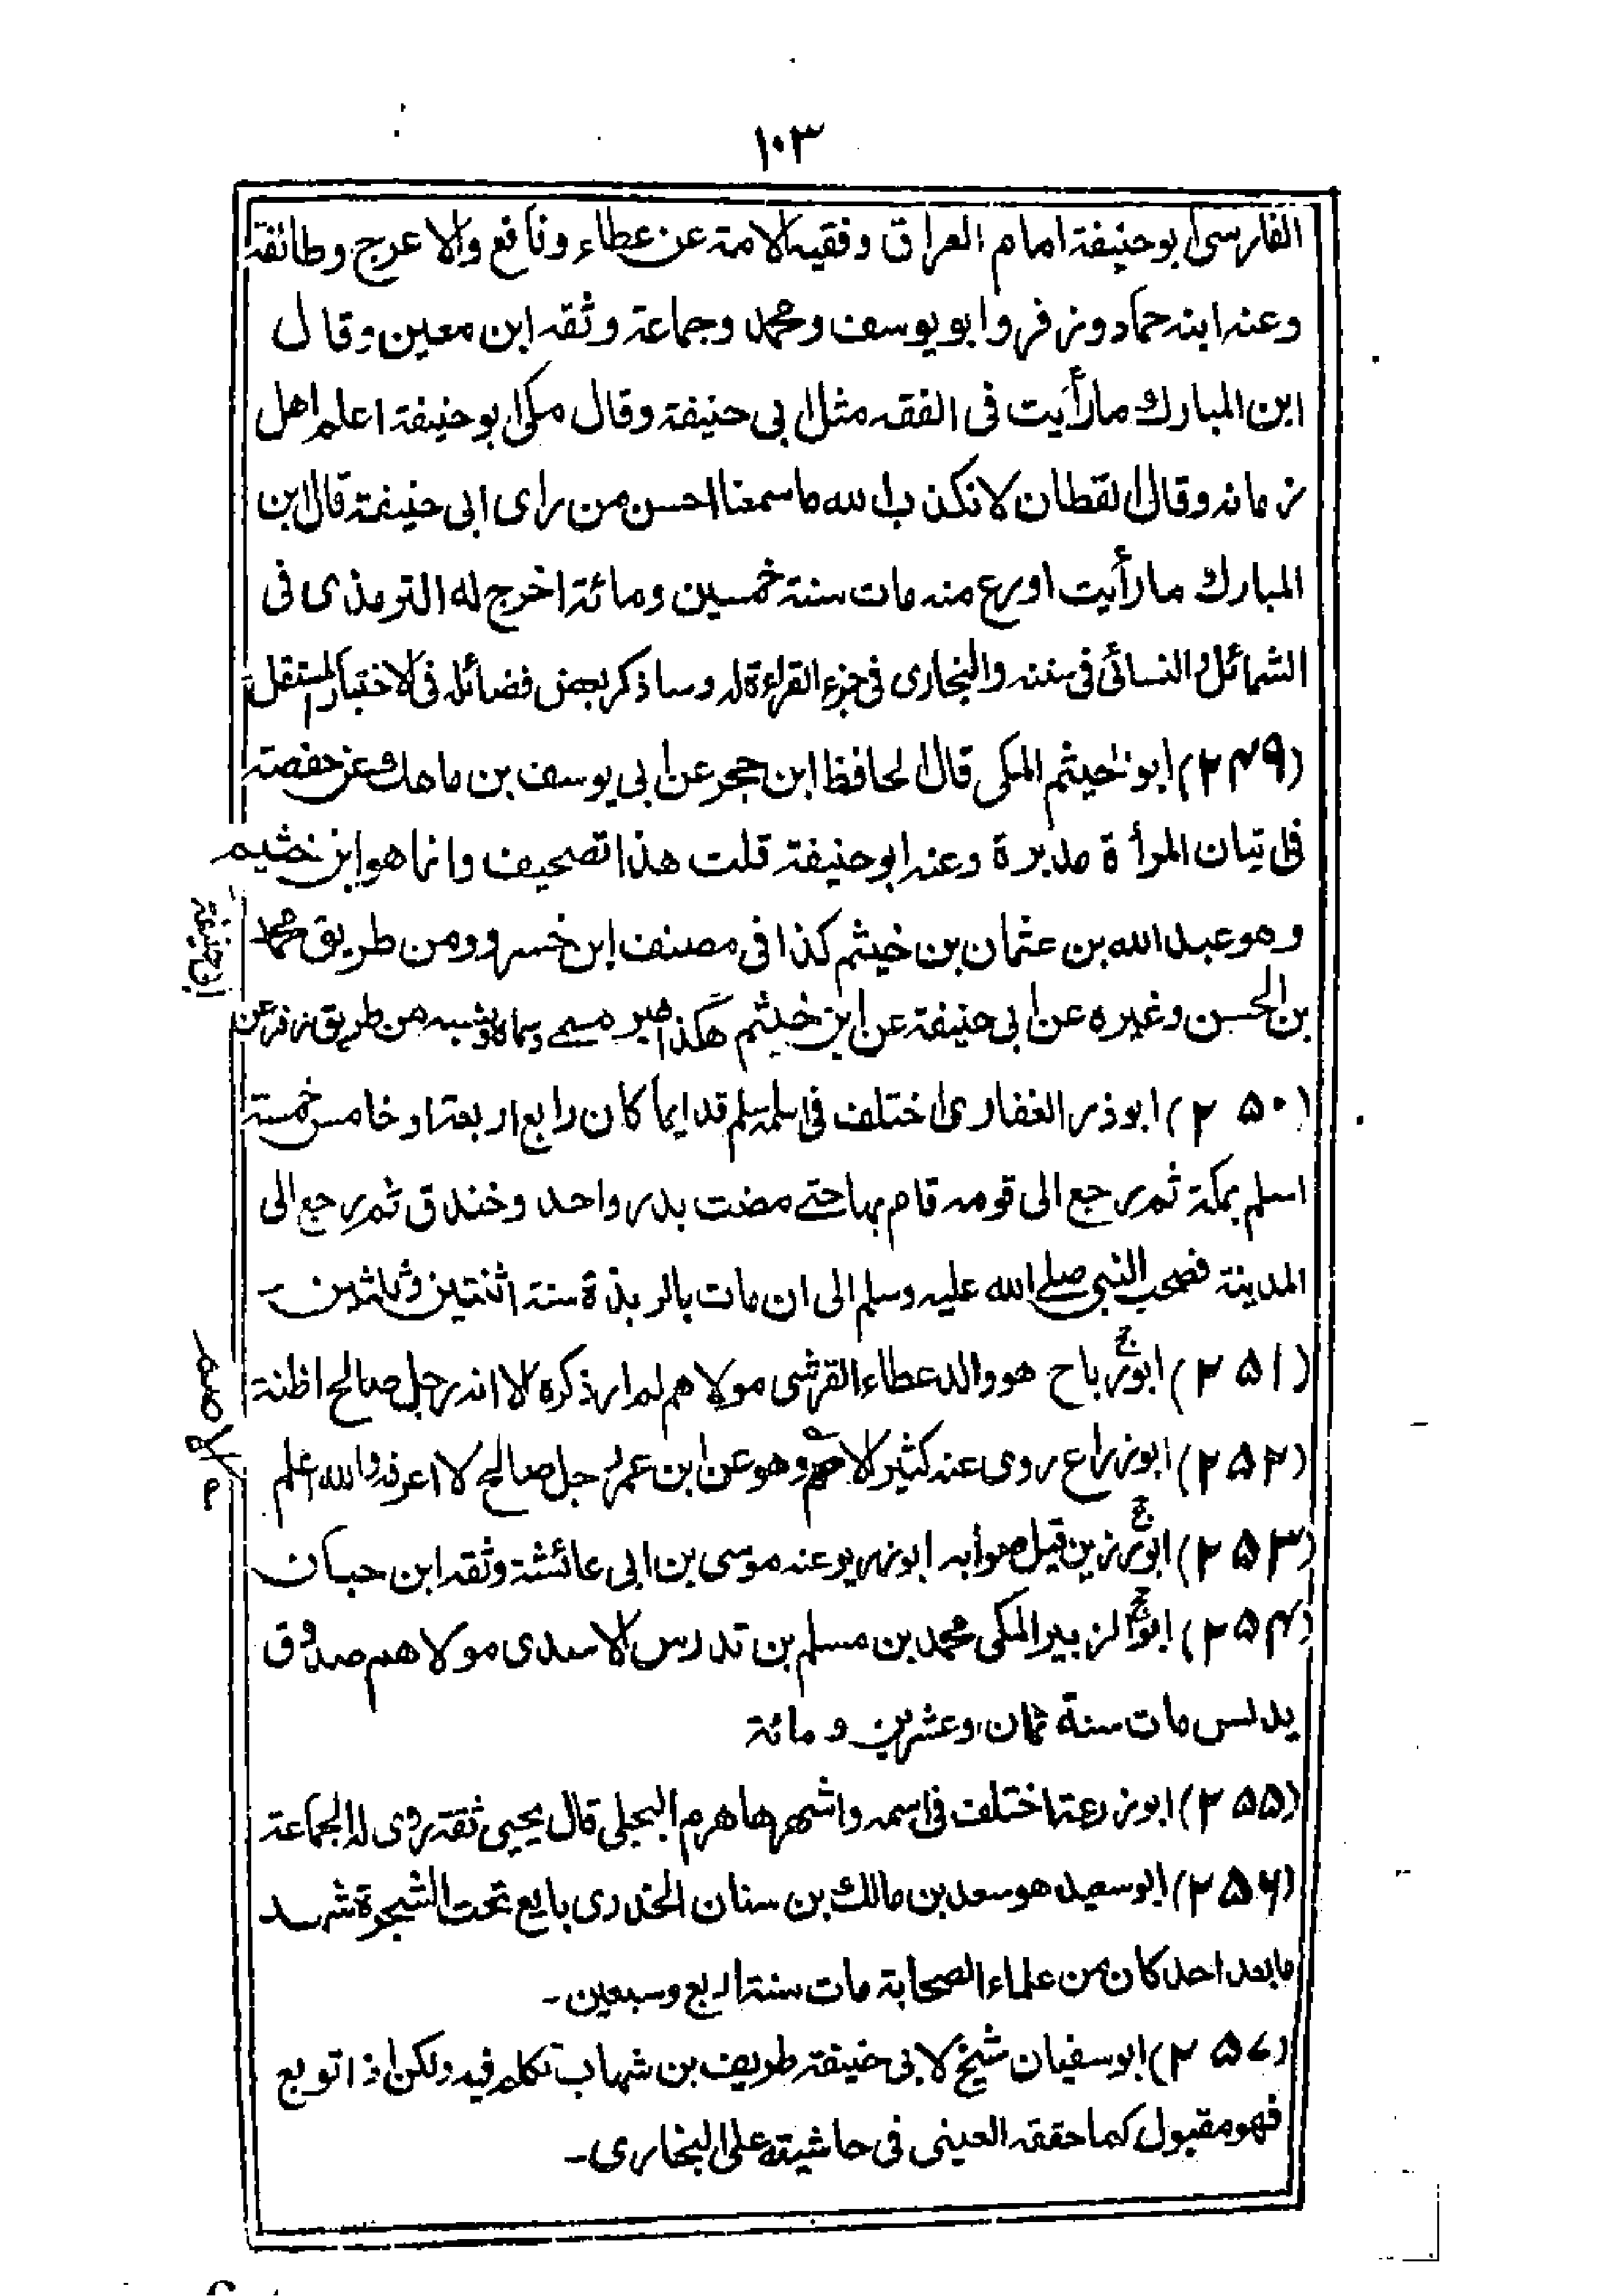 ١٠٣
الفارسی ابو حنیفة امام العراق وفقیه الامة عن عطاء ونافع والاعرج وطائفة
وعنه ابنه حماد وزفر وابو یوسف ومحمد وجماعة وثقه ابن معین وقال
ابن المبارك مارأیت فی الفقه مثل ابی حنیفة وقال مکی ابو حنیفة اعلم اهل
زمانه وقال القطان لا نکذب الله ما سمعنا احسن من رای ابی حنیفة قال ابن
المبارك مارأیت اورع منه مات سنة خمسین ومائة اخرج له الترمذی فی
الشمائل والنسائی فی سننه والبخاری فی جزء القراءة له وساذکر بعض فضائله فی الاختبار المستقل
(٢٤٩) ابو خیثم المکی قال الحافظ ابن حجر عن ابی یوسف بن ماهك عن حفصة
فی اتیان المرأة مدبرة وعنه ابو حنیفة قلت هذا تصحیف وانما هو ابن خثیم
وهو عبد الله بن عثمان بن خیثم کذا فی مصنف ابن خسرو ومن طریق محمد
بن الحسن وغیره عن ابی حنیفة عن ابن خیثم هکذا غیر مسمی وسماه ونسبه من طریق زفر عن
ابی حنیفة
(٢٥٠) ابوذر الغفاری اختلف فی اسمه اسلم قدایما کان رابع اربعة او خامس خمسة
اسلم بمکة ثم رجع الی قومه قام بها حتے مضت بدر واحد وخندق ثم رجع الی
المدینة فصحب النبی صلے الله علیه وسلم الی ان مات بالربذة سنة اثنتین وثلثین۔
(٢٥١) ابو رباح هو والد عطاء القرشی مولاهم لم ار ذکره الا انه رجل صالح اظنة
(٢٥٢) ابوزراع روی عنه کثیر الاصم وهو عن ابن عمر رجل صالح لا اعرفه والله اعلم
الاصم
(٢٥٣) ابو رزین قیل صوابه ابو زریر وعنه موسی بن ابی عائشة وثقه ابن حبان
(٢٥٤) ابو الزبیر المکی محمد بن مسلم بن تدرس الاسدی مولاهم صدوق
یدلس مات سنة ثمان وعشرین ومائة
(٢٥٥) ابوزرعة اختلف فی اسمه واشهرها هرم البجلی قال یحیی ثقة روی له الجماعة
(٢٥٦) ابو سعید هو سعد بن مالك بن سنان الخدری بایع تحت الشجرة شهد
مابعد احد کان من علماء الصحابة مات سنة اربع وسبعین۔
(٢٥٧) ابو سفیان شیخ لابی حنیفة طریف بن شهاب تکلم فیه ولکن اذا توبع
فهو مقبول کما حققه العینی فی حاشیته علی البخاری۔